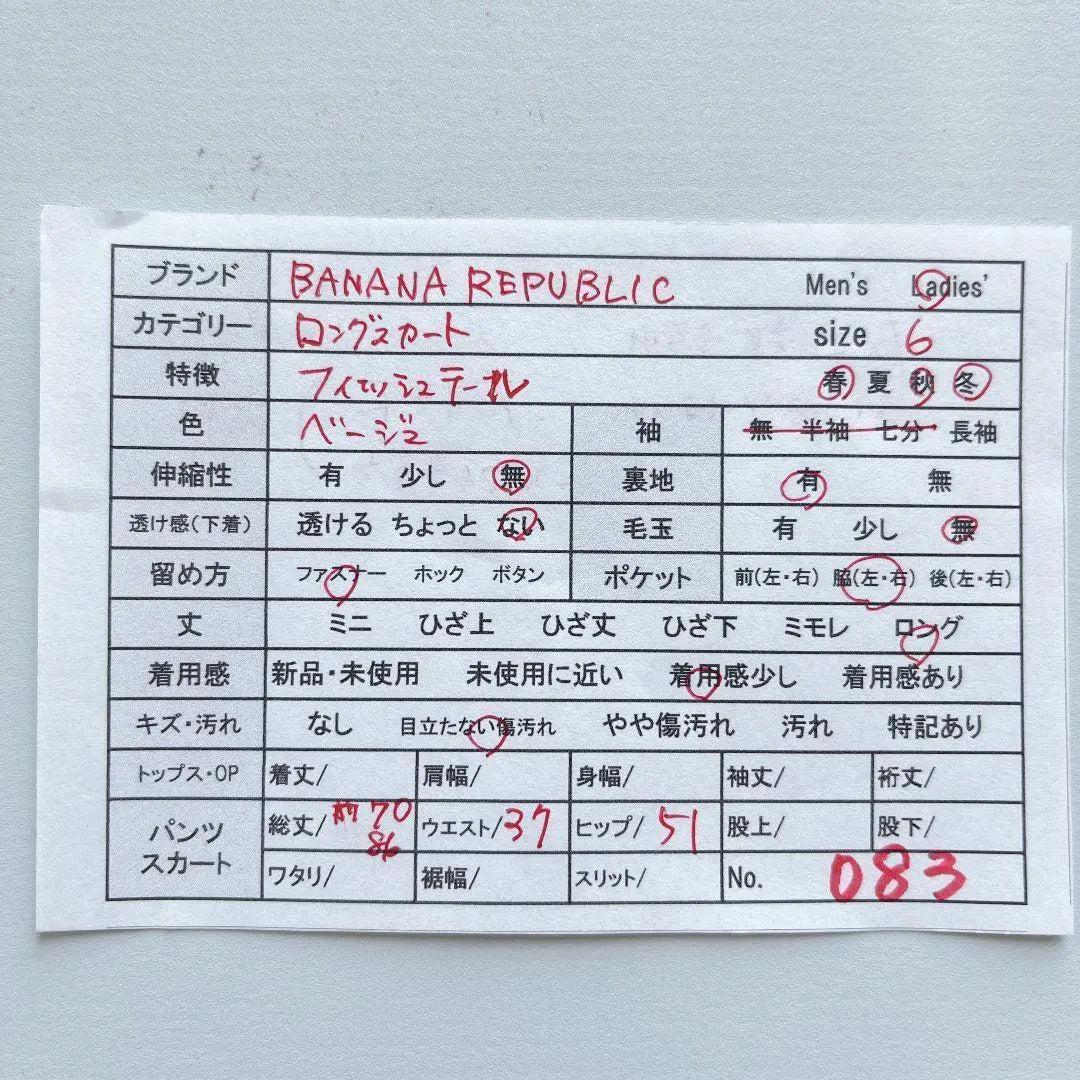 ブランド BANANA REPUBLIC Men's Ladies'
カテゴリー ロングスカート size 6
特徴 フィッシュテール 春 夏 秋 冬
色 ベージュ 袖 無 半袖 七分 長袖
伸縮性 有 少し 無 裏地 有 無
透け感(下着) 透ける ちょっと ない 毛玉 有 少し 無
留め方 ファスナー ホック ボタン ポケット 前(左・右) 脇(左・右) 後(左・右)
丈 ミニ ひざ上 ひざ丈 ひざ下 ミモレ ロング
着用感 新品・未使用 未使用に近い 着用感少し 着用感あり
キズ・汚れ なし 目立たない傷汚れ やや傷汚れ 汚れ 特記あり
トップス・OP 着丈/ 肩幅/ 身幅/ 袖丈/ 裄丈/
パンツ スカート 総丈/ 前70 86 ウエスト/37 ヒップ/ 51 股上/ 股下/
ワタリ/ 裾幅/ スリット/ No. 083